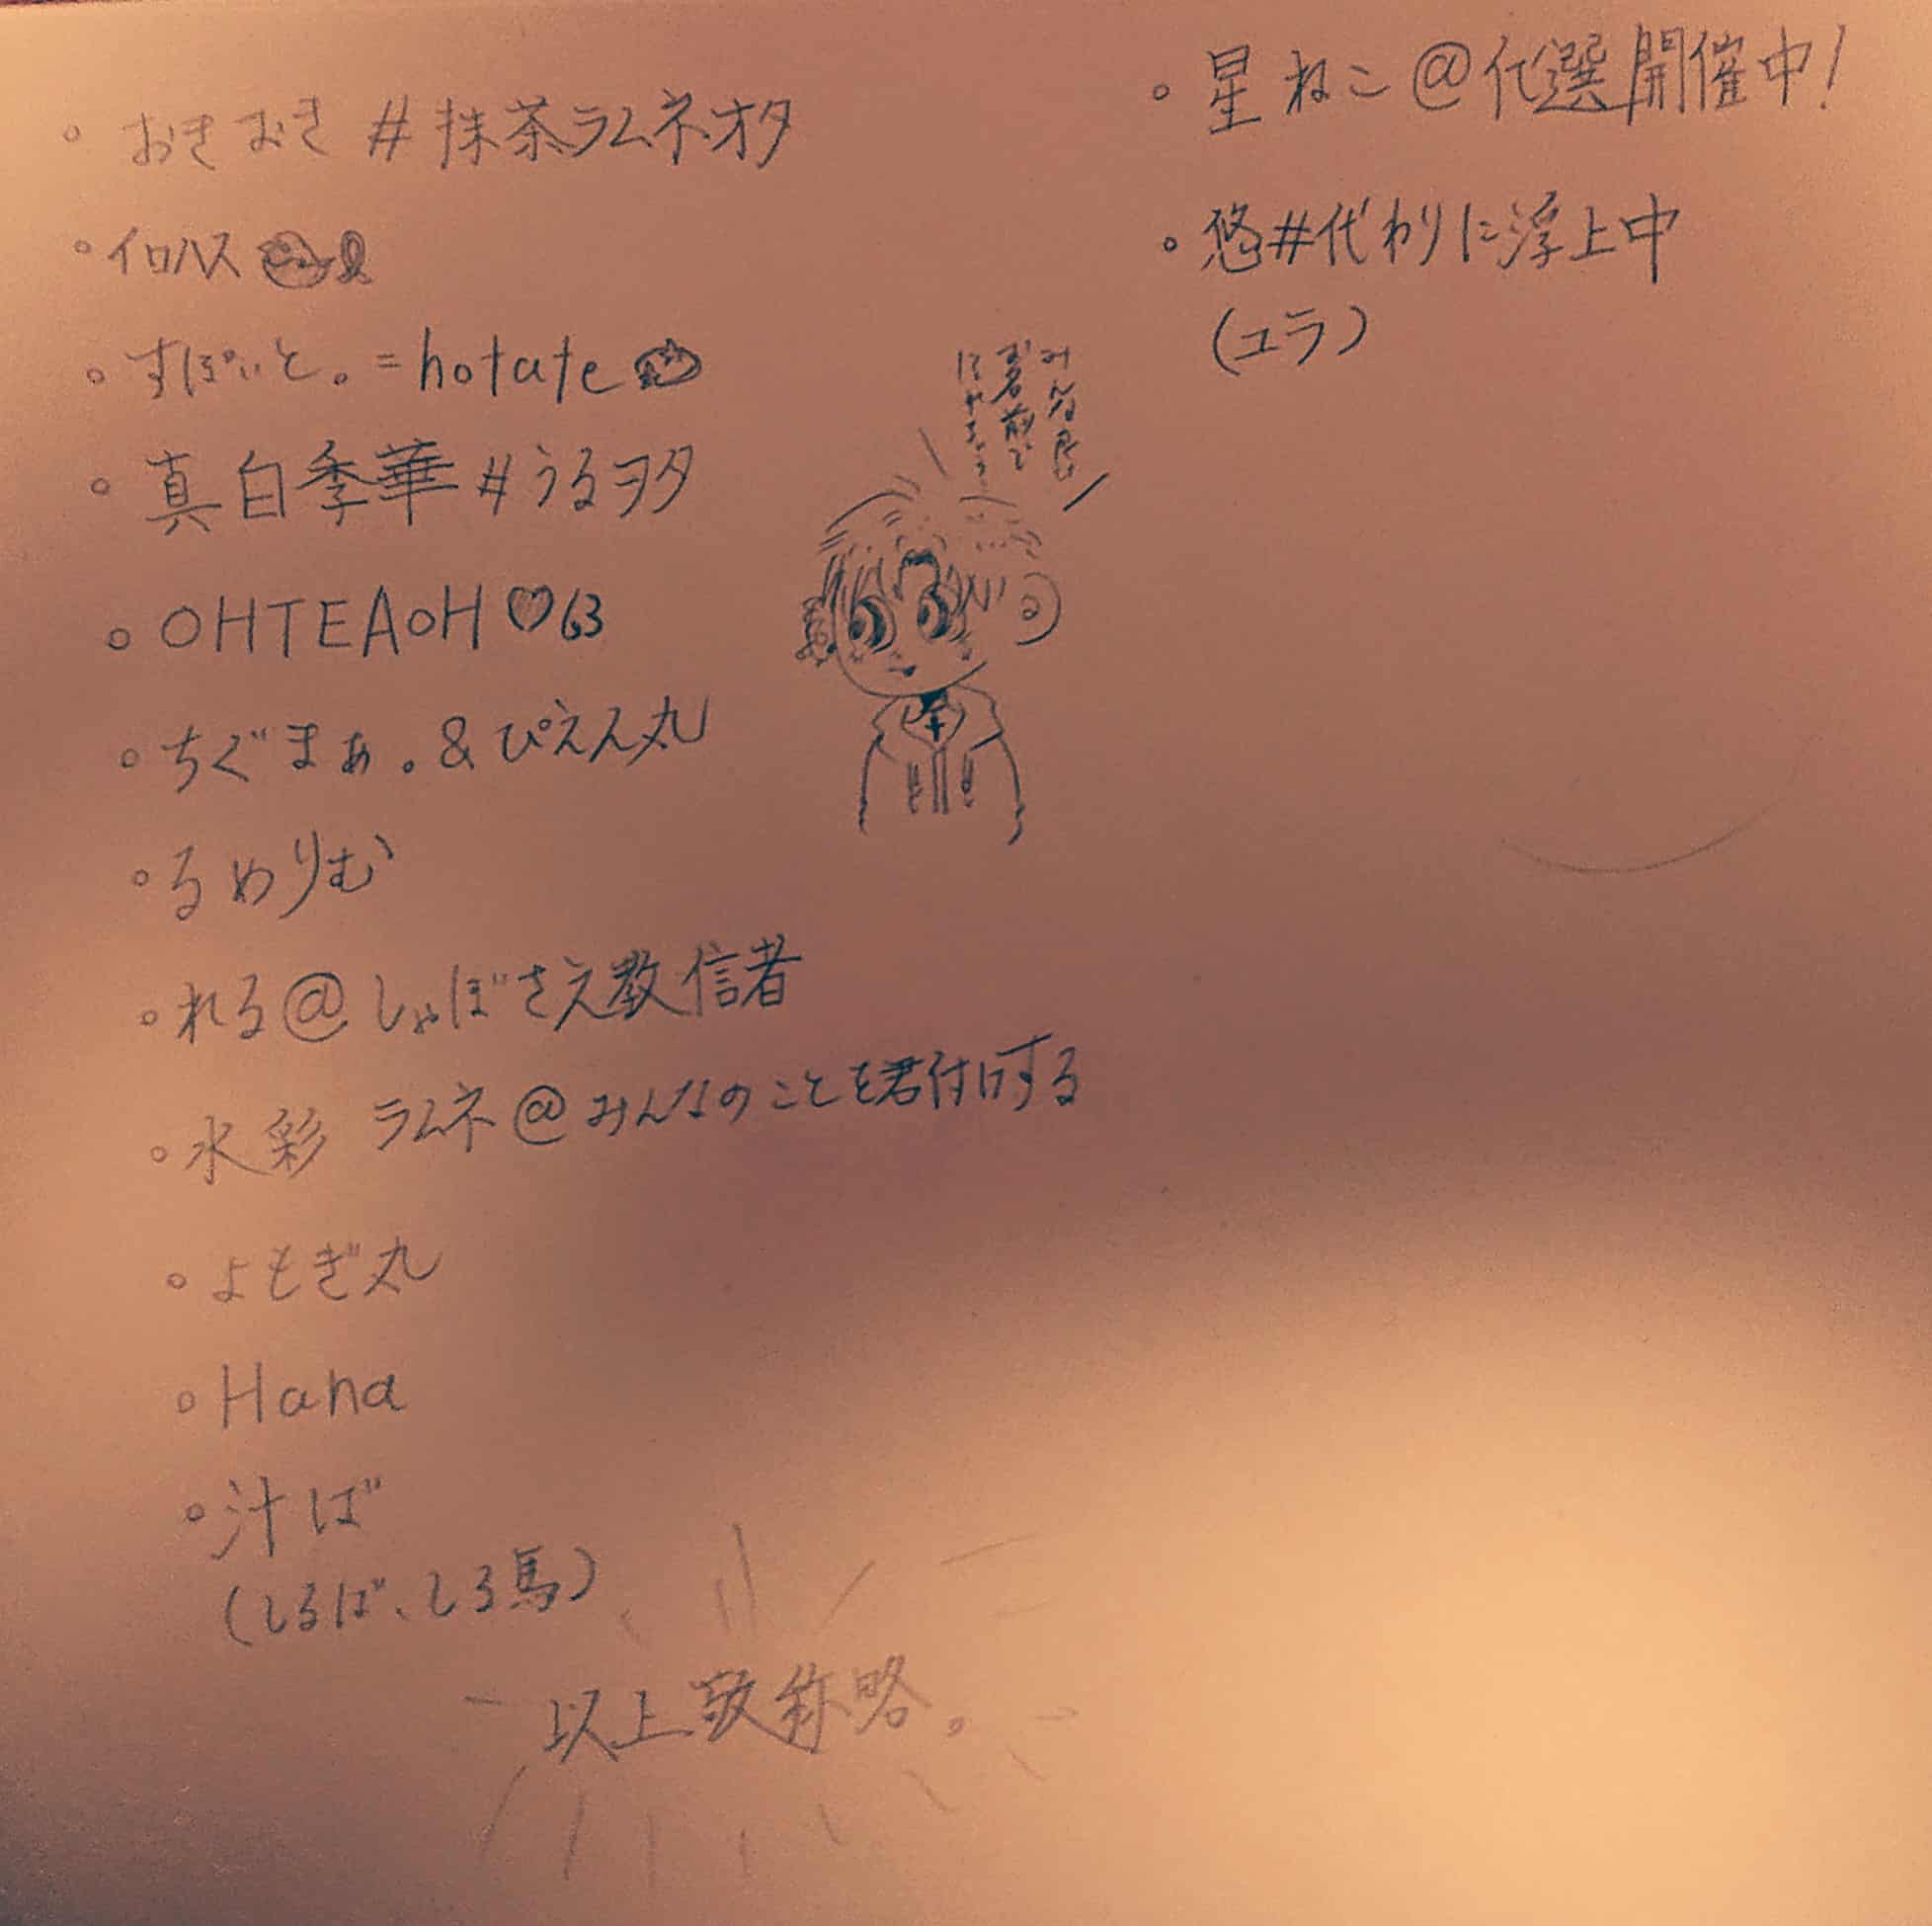 。おきおき #抹茶ラムネオタ
。イロハス
。すぽいと。=hotate
。真白季華 #うるヲタ
。OHTEAoH♡63
。ちぐまぁ。&ぴえん丸
。るめりむ
。れる@しゃぼさえ教信者
。水彩 ラムネ@みんなのことを君付けする
。よもぎ丸
。Hana
。汁ば
(しるば、しる馬)
以上敬称略。
。星ねこ@代選開催中!
。悠#代わりに浮上中
(ユラ)
みんな良い
お名前で